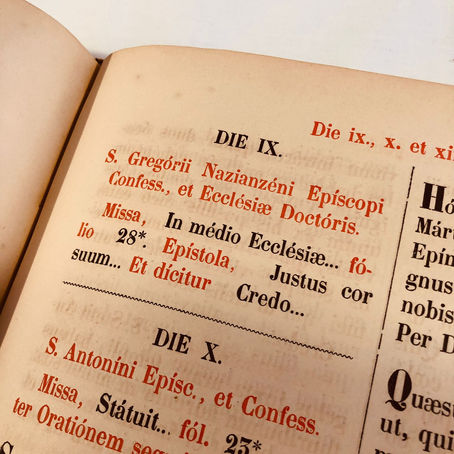 Die ix., x. et xi
DIE IX.
S. Gregórii Nazianzéni Epíscopi
Confess., et Ecclésiæ Doctóris.
Missa, In médio Ecclésiæ... fó-
lio 28*. Epístola, Justus cor
suum... Et dícitur Credo...
DIE X.
S. Antoníni Epísc., et Confess.
Missa, Státuit... fól. 23*
ter Oratiónem
Hó
Márt
Epín
gnus
nobis
Per D
Quæs
ut, qui